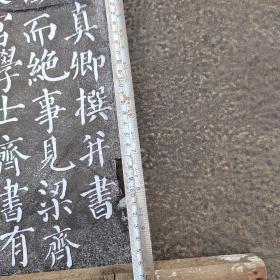 真卿撰并書
而絶事見梁齊
官學士齊書有